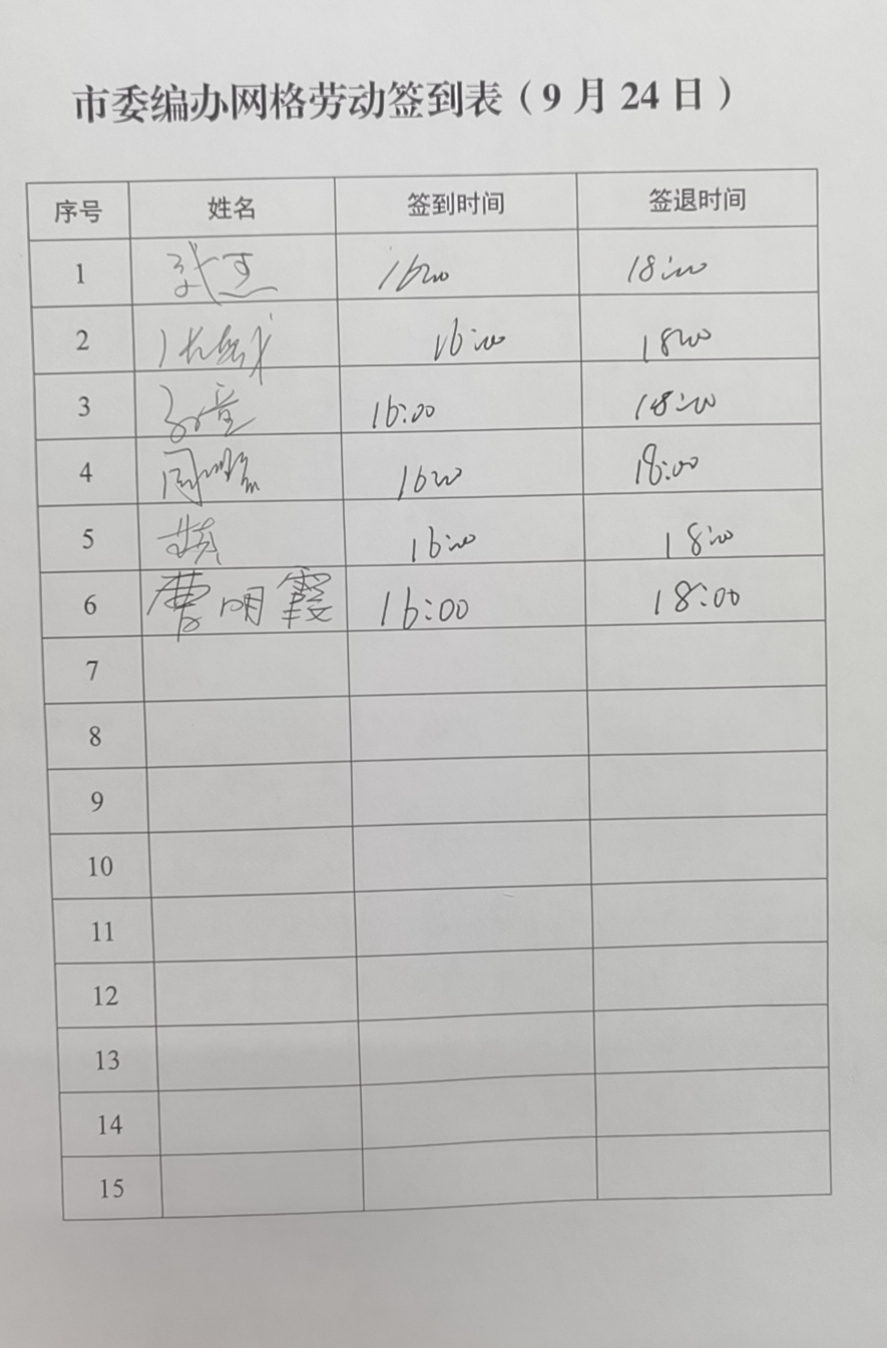 市委编办网格劳动签到表（9月24日）
序号 姓名 签到时间 签退时间
1 16:00 18:00
2 16:00 18:00
3 16:00 18:00
4 16:00 18:00
5 16:00 18:00
6 曹明霞 16:00 18:00
7
8
9
10
11
12
13
14
15